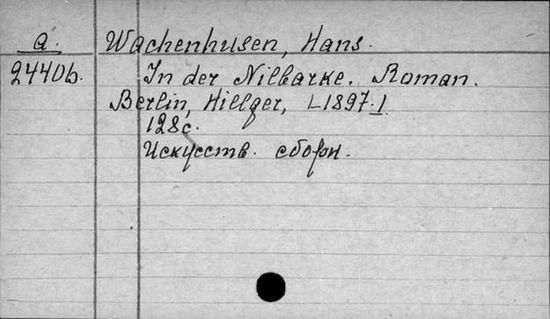 a. Wachenhusen, Hans.
2440b. In der Nilbarke. Roman.
Berlin, Hillger, [1897.]
128c.
Искусств. сборн.